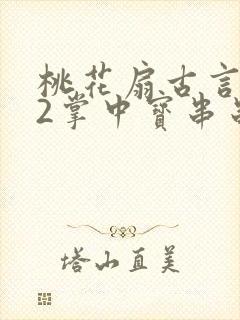 桃花扇古言
2掌中寳串
塔山直美